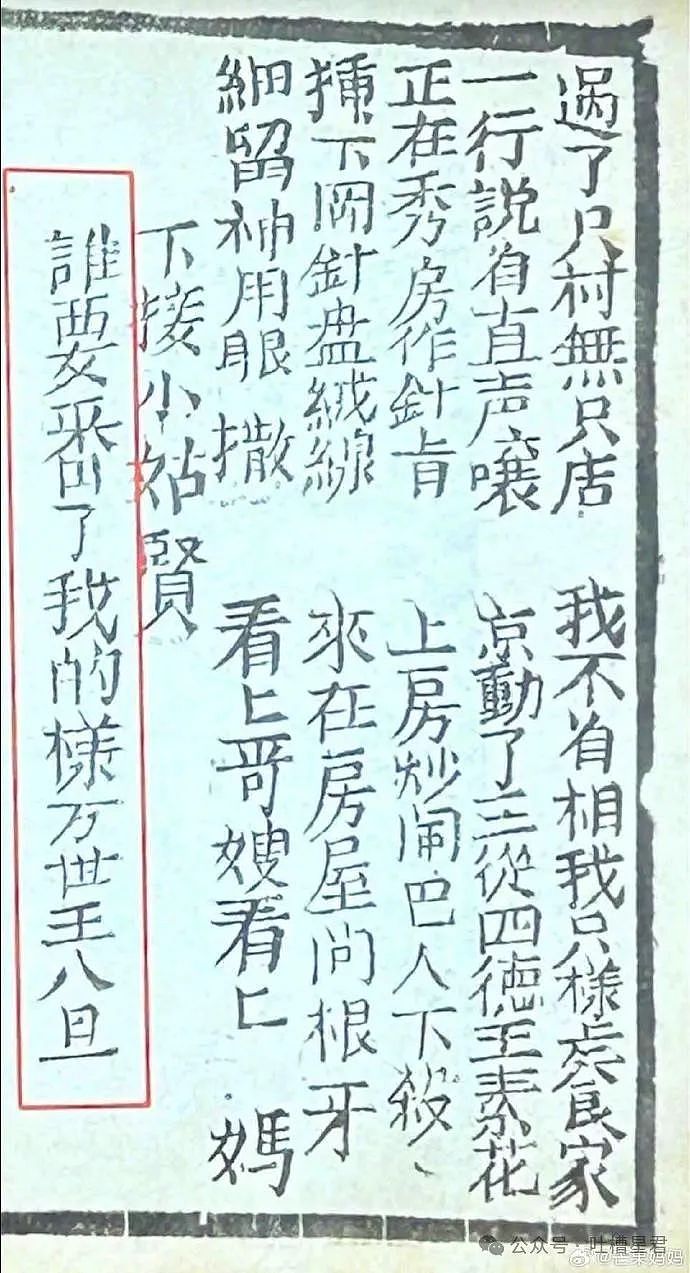 過了只村無只店 我不肖相我只樣䖏良家
一行説肖直声嚷 京動了三從四德王素花
正在秀房作針肯 上房炒鬧巴人下殺、
揰下岡針盘絨線 來在房屋问根牙
細留神用眼撒 看匕哥嫂看匕媽
下接小姑賢
誰要番了我的樣万世王八旦
公众号·吐槽星君
@芒果妈妈